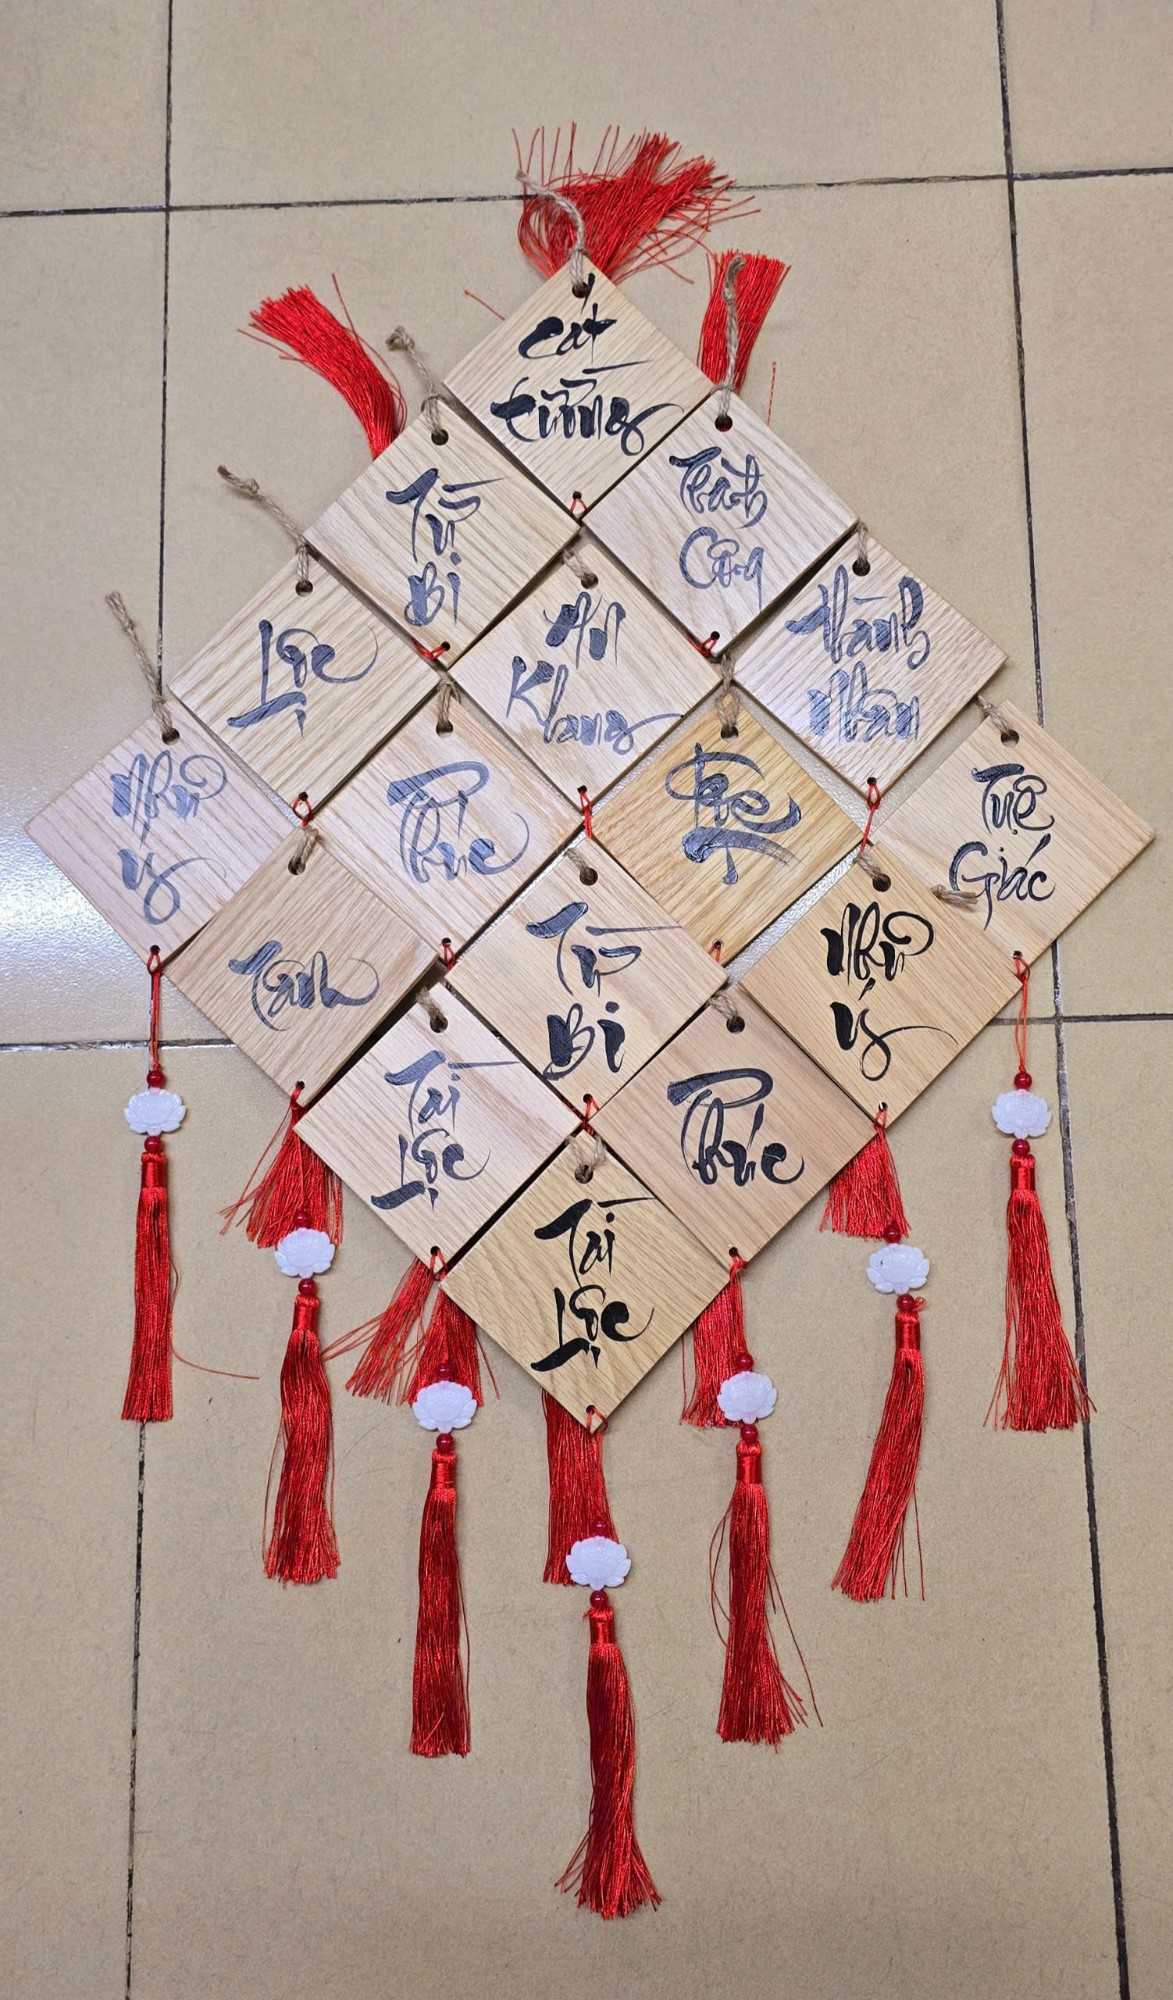 Cát
tường
Từ
Bi
Thành
Công
Lộc
An
Khang
Thành
Nhân
Như
ý
Phúc
Lộc
Tuệ
Giác
Tâm
Từ
Bi
Như
ý
Tài
Lộc
Phúc
Tài
Lộc